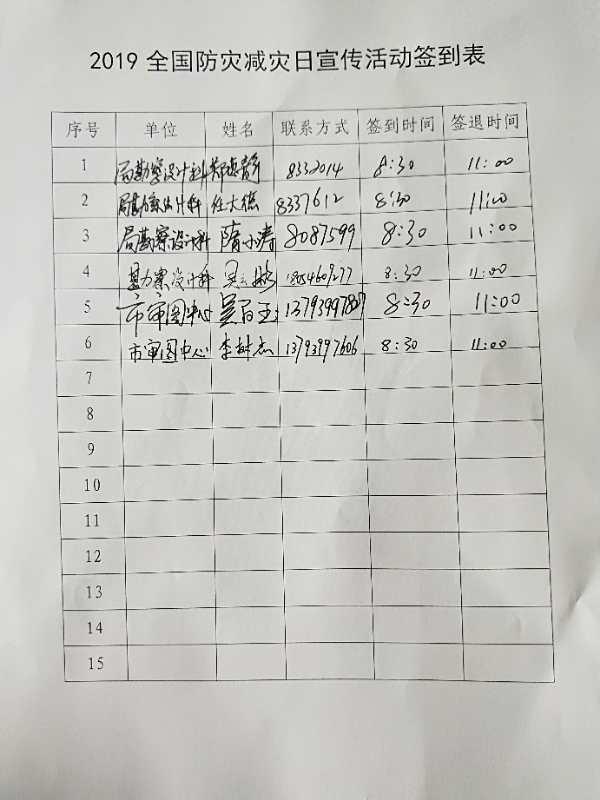 2019 全国防灾减灾日宣传活动签到表
序号 单位 姓名 联系方式 签到时间 签退时间
1 局勘察设计科 8332014 8:30 11:00
2 局勘察设计科 任大德 8337612 8:30 11:00
3 局勘察设计科 隋小涛 8087599 8:30 11:00
4 勘察设计科 18054609277 8:30 11:00
5 市审图中心 8:30 11:00
6 市审图中心 李树杰 13793997606 8:30 11:00
7
8
9
10
11
12
13
14
15